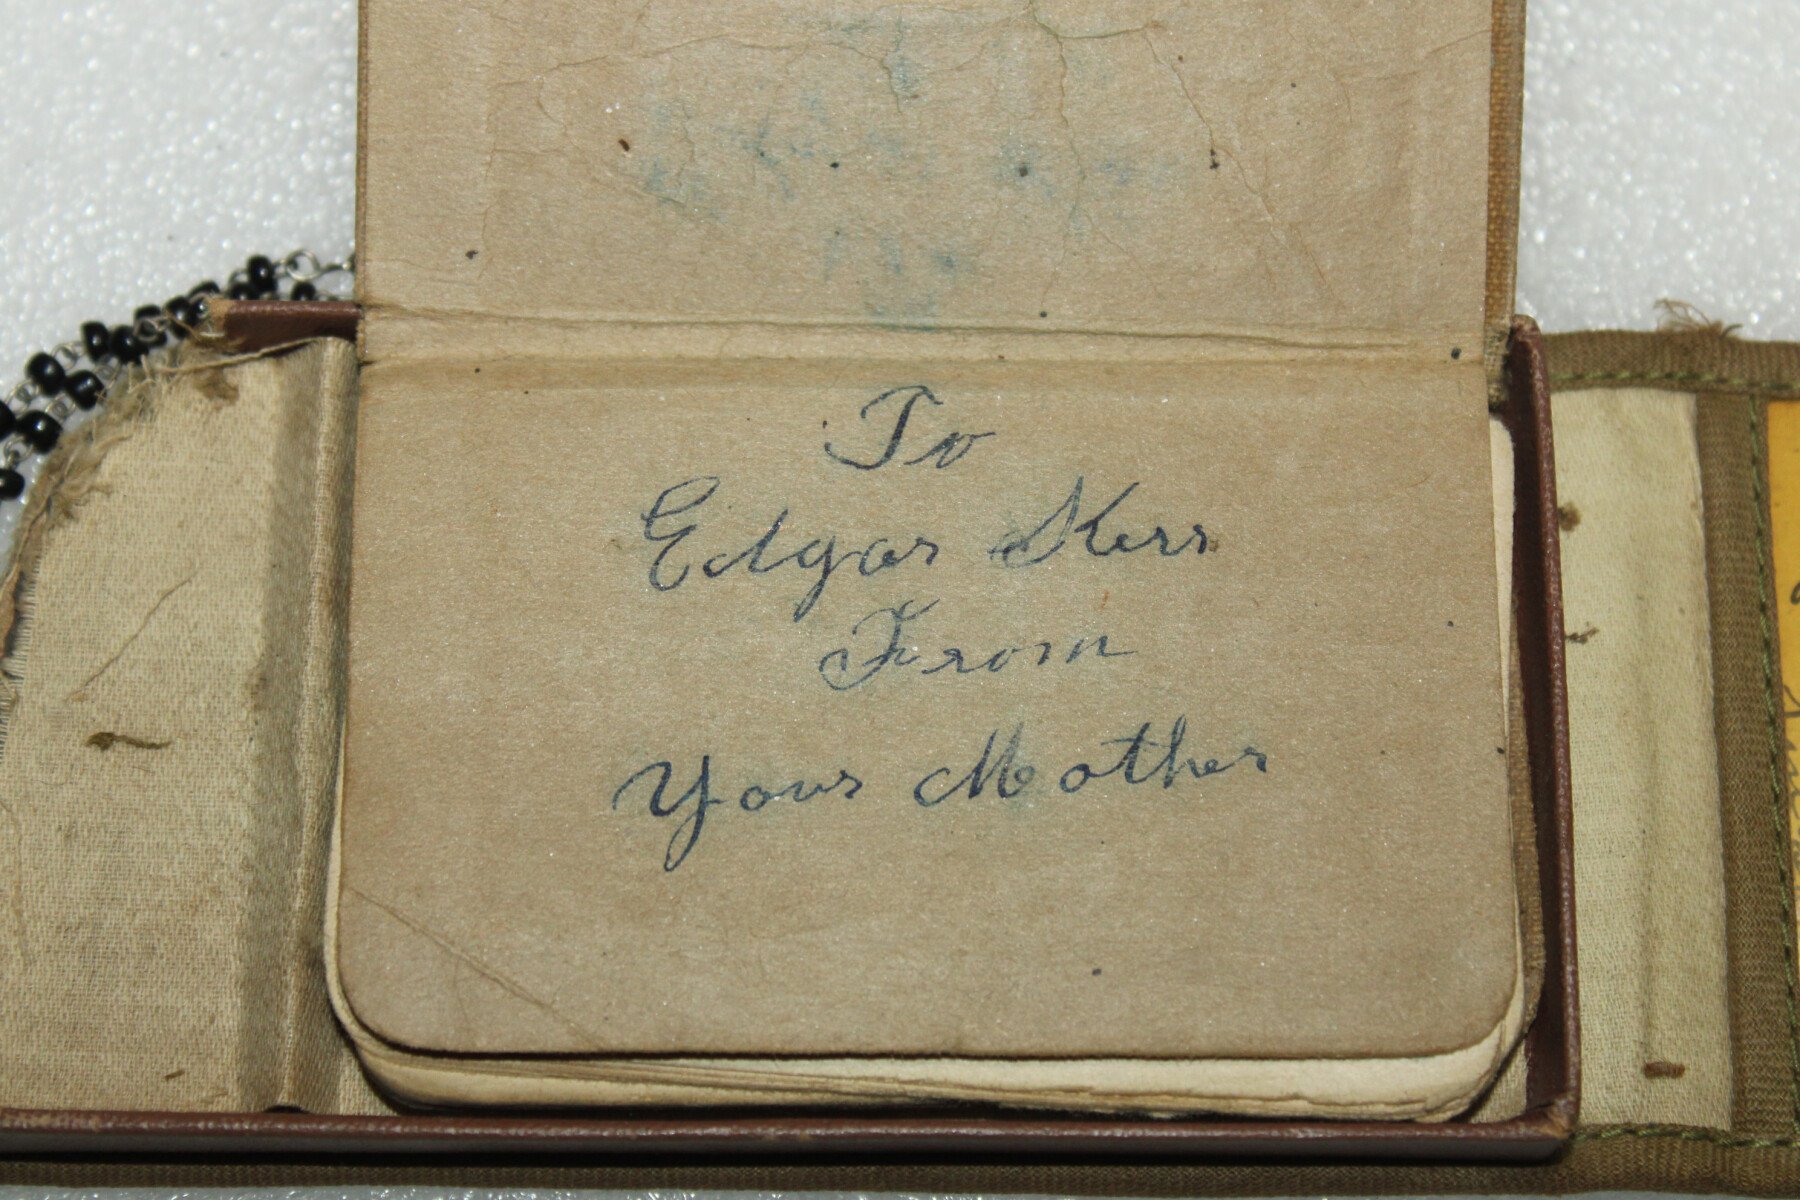 To
Edgar Kerr
From
Your Mother